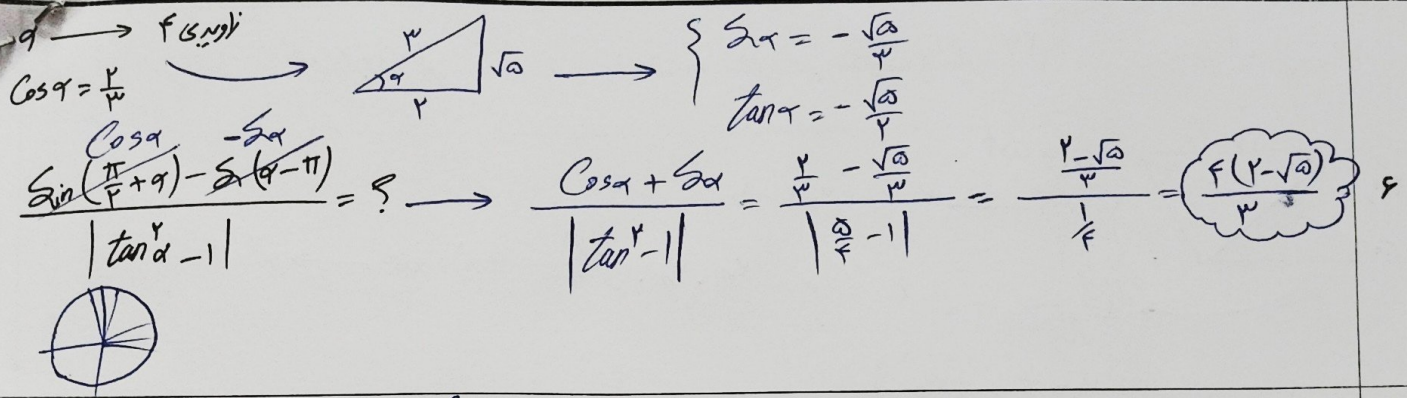 α → ناحیه‌ی ۴
Cosα = ۲/۳
۳ α ۲ √۵
Sinα = - √۵/۳
tanα = - √۵/۲
Cosα -Sinα
Sin(π/۲ + α) - Sin(α - π) / |tan²α - 1| = ? → Cosα + Sinα / |tan² - 1| = ۲/۳ - √۵/۳ / |۵/۴ - 1| = ۲-√۵/۳ / 1/۴ = ۴(۲-√۵)/۳ ۶